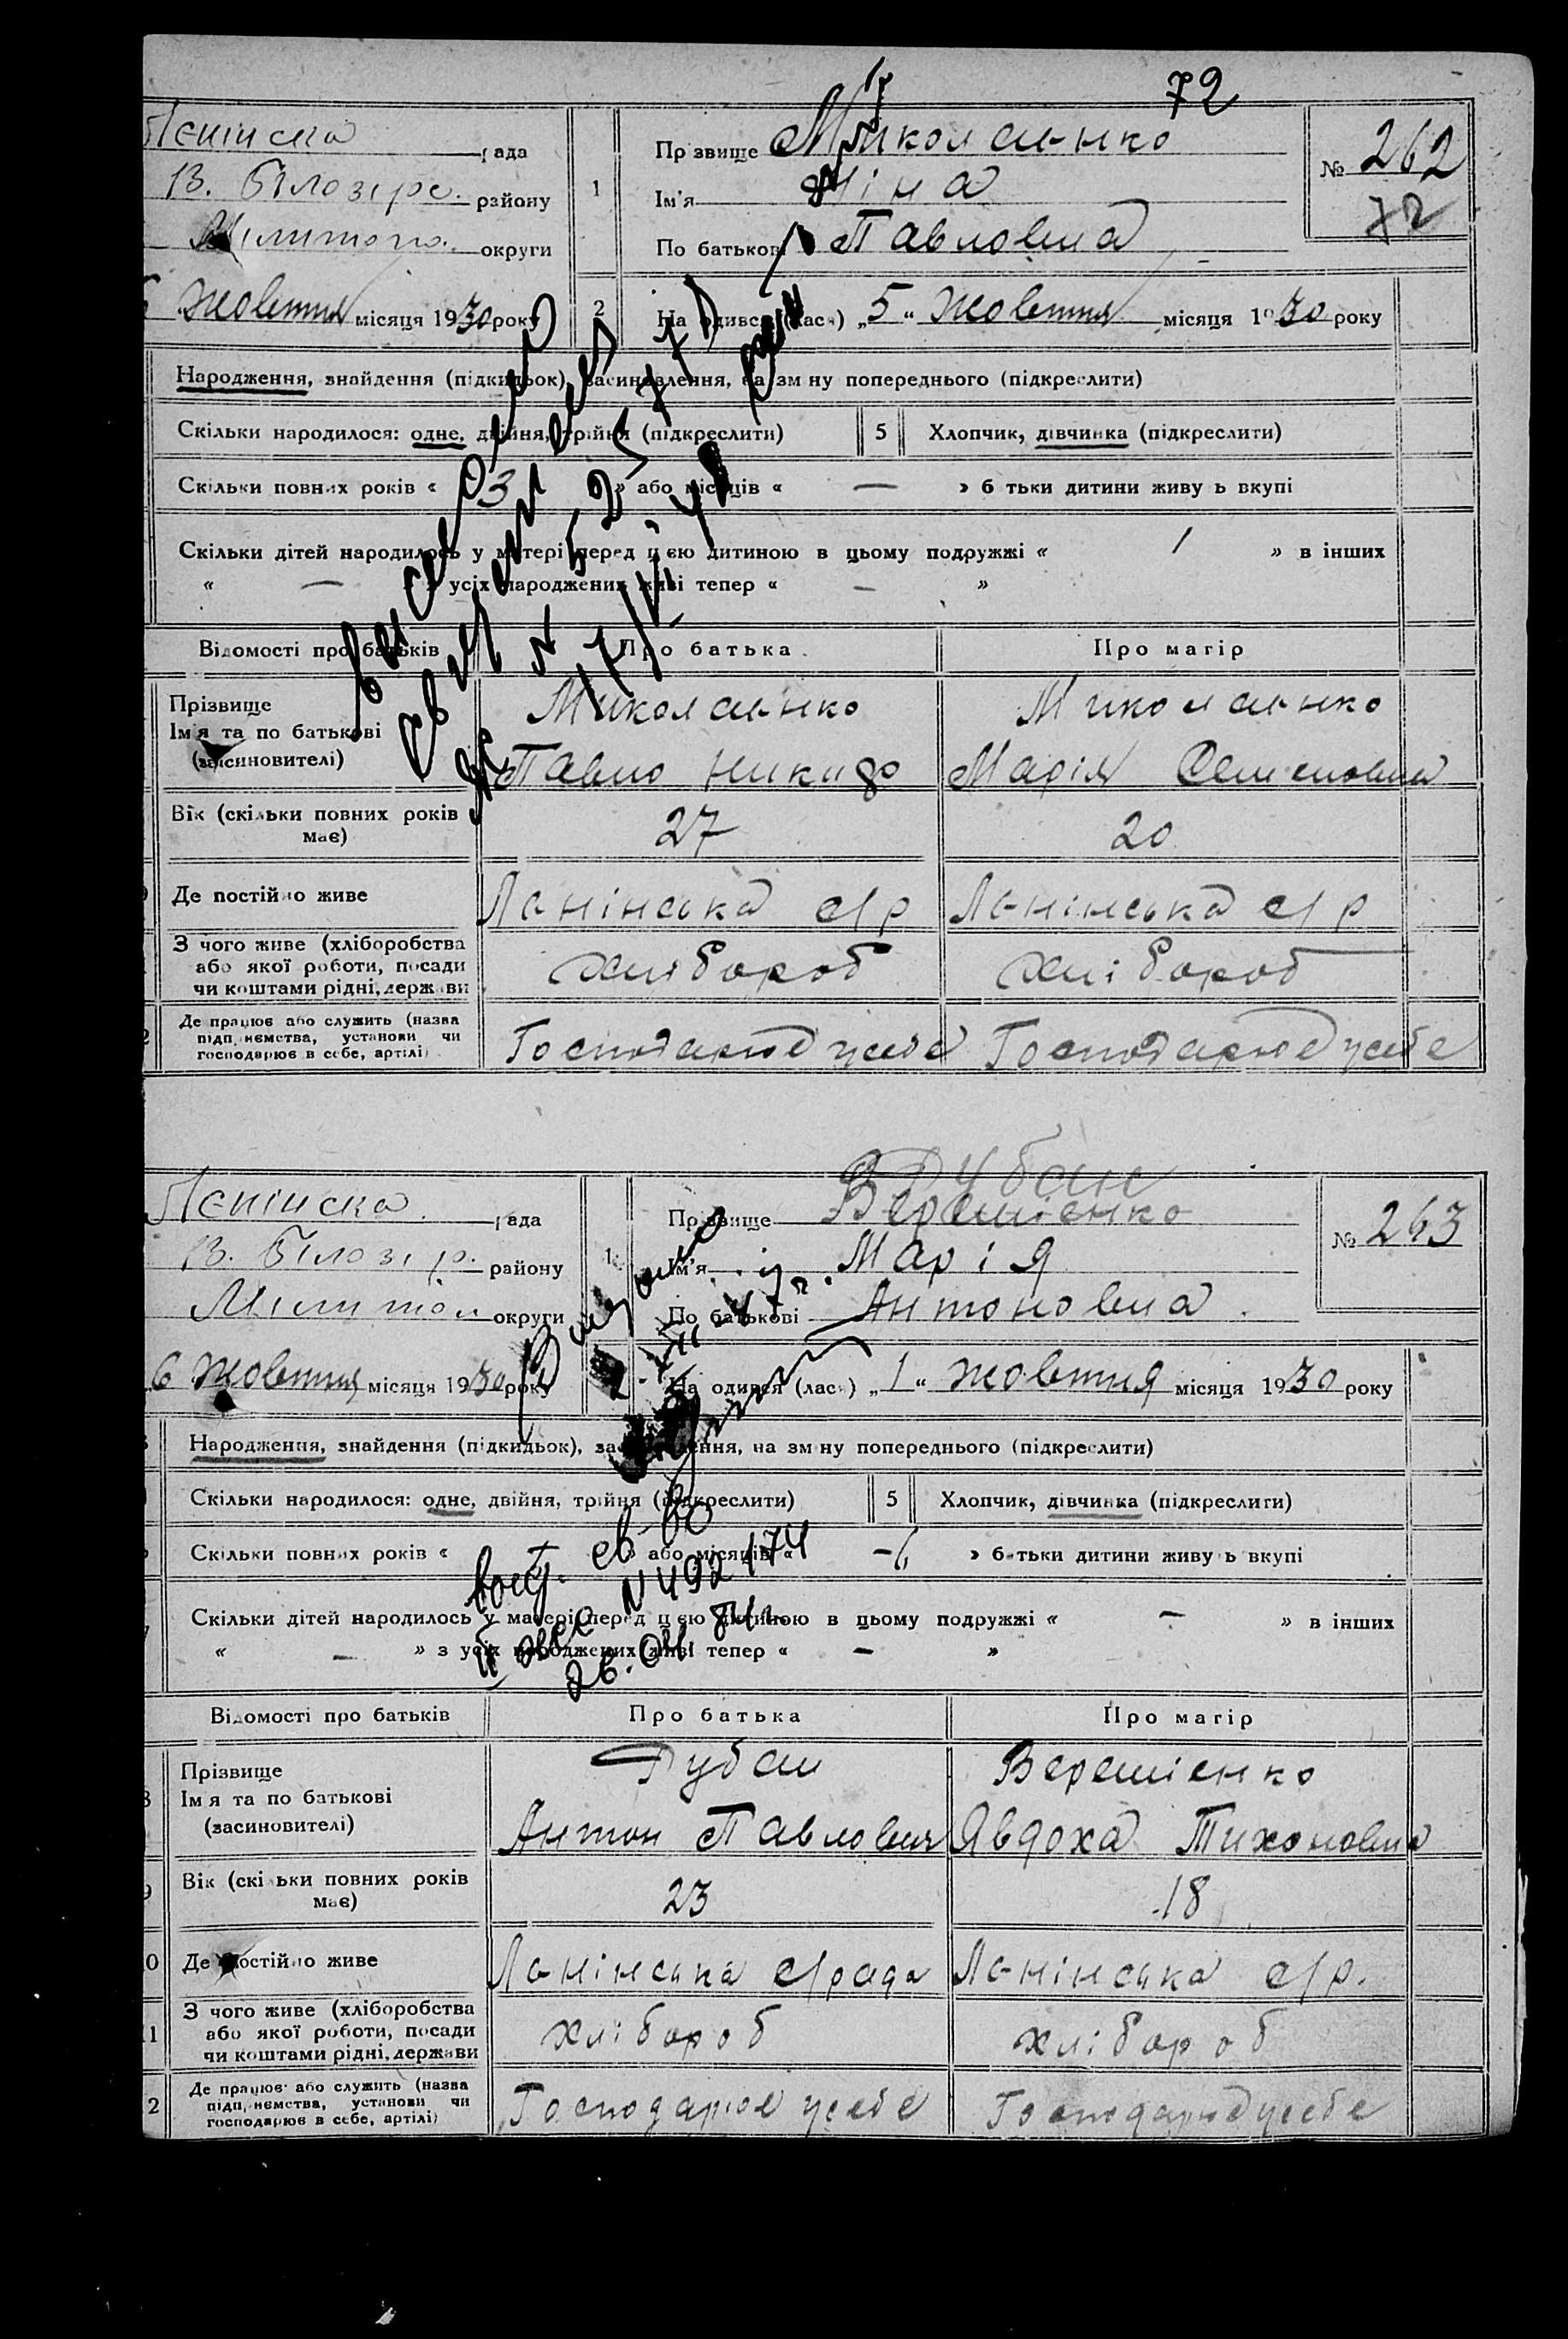 72
Ленінска рада
В. Білозірс. району
Мілитопо. округи
Жовтня місяця 1930 року
1 Пр звище Миколаєнко
Ім'я Ніна
По батькові Павловна
№ 262
72
2 На одився (лась) „5“ Жовтня місяця 1930 року
Народження, знайдення (підкидьок), засиновлення, на зм ну попереднього (підкреслити)
Скільки народилося: одне, двійня, трійня (підкреслити) 5 Хлопчик, дівчинка (підкреслити)
Скільки повних років « 3 » або місяців « — » б тьки дитини живу ь вкупі
Скільки дітей народилось у матері перед цією дитиною в цьому подружжі « 1 » в інших
« — » усіх народжених живі тепер « — »
Відомості про батьків Про батька Про матір
Прізвище
Ім'я та по батькові
(засиновителі)
Миколаєнко Миколаєнко
Павло Никифо Марія Семеновна
Вік (скільки повних років має) 27 20
Де постійно живе Ленінська с/р Ленінська с/р
З чого живе (хліборобства
або якої роботи, посади
чи коштами рідні, держави
хлібороб хлібороб
Де працює або служить (назва
підприємства, установи чи
господарює в себе, артілі)
Господарює усебе Господарює усебе
Ленінска рада
В. Білозір. району
Мілитоп округи
6 Жовтня місяця 1930 року
1 Прізвище Верещіенко
Рубан
Ім'я Марія
По батькові Антоновна
№ 263
На одився (лась) „1“ жовтня місяця 1930 року
Народження, знайдення (підкидьок), засиновлення, на зм ну попереднього (підкреслити)
Скільки народилося: одне, двійня, трійня (підкреслити) 5 Хлопчик, дівчинка (підкреслити)
Скільки повних років « — » або місяців « » б тьки дитини живу ь вкупі
Скільки дітей народилось у матері перед цією дитиною в цьому подружжі « — » в інших
« — » з усіх народжених живі тепер « — »
N 492174
26.04.
Відомості про батьків Про батька Про матір
Прізвище
Ім'я та по батькові
(засиновителі)
Рубан Верещіенко
Антон Павлович Явдоха Тихоновна
Вік (скільки повних років має) 23 18
10 Де постійно живе Ленінська с/рада Ленінська с/р.
11 З чого живе (хліборобства
або якої роботи, посади
чи коштами рідні, держави
хлібороб хлібороб
12 Де працює або служить (назва
підприємства, установи чи
господарює в себе, артілі)
Господарює усебе Господарює усебе